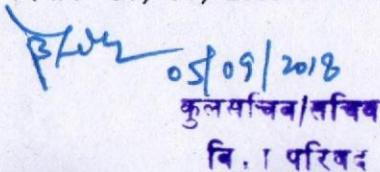 05/09/2018
कुलसचिव/सचिव
वि. । परिषद